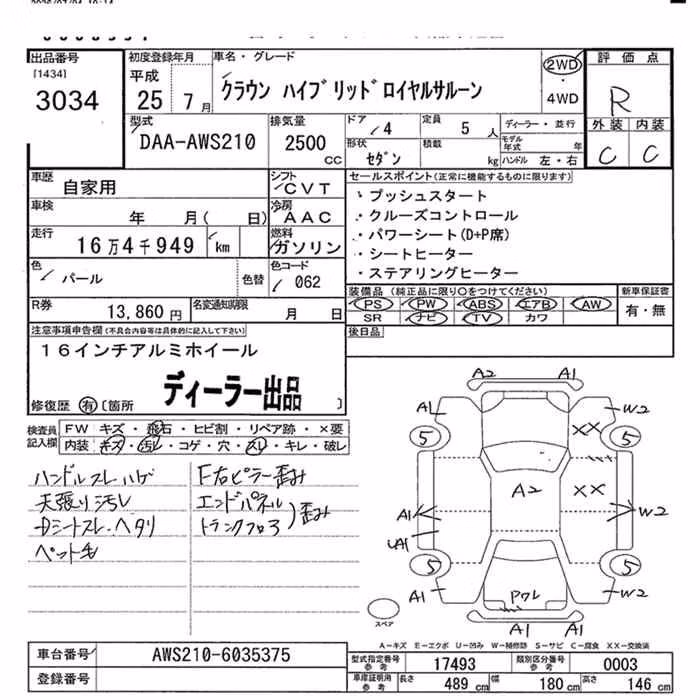 2026/07/04 10:14
出品番号
[1434]
3034
初度登録年月
平成
25 7 月
車名・グレード
クラウン ハイブリッドロイヤルサルーン
2WD
・
4WD
評価点
R
外装 内装
C C
型式
DAA-AWS210
排気量
2500
CC
ドア
4
定員
5 人
ディーラー・並行
形状
セダン
積載
kg
モデル年式
年
ハンドル 左・右
車歴
自家用
シフト
CVT
車検
年 月( 日)
冷房
AAC
走行
16万4千949 km
燃料
ガソリン
色
パール
色替
色コード
062
R券
13,860 円
名変通知期限
月 日
セールスポイント(正常に機能するものに限ります)
・プッシュスタート
・クルーズコントロール
・パワーシート(D+P席)
・シートヒーター
・ステアリングヒーター
装備品 (純正品に限り○をつけてください)
新車保証書
PS PW ABS エアB AW
SR ナビ TV カワ
有・無
後日品
注意事項申告欄(不具合内容等は具体的に記入して下さい)
16インチアルミホイール
ディーラー出品
修復歴 有 〔箇所 〕
検査員
記入欄
FW キズ・飛石・ヒビ割・リペア跡・×要
内装 キズ・汚レ・コゲ・穴・スレ・キレ・破レ
ハンドルスレハゲ
天張り汚レ
Dシートスレ・ヘタリ
ペット毛
F右ピラー歪み
エンドパネル
トランクフロア
)歪み
A2 A1
A1 W2
5 XX 5
A2 XX
A1 W2
UA1
5 5
A1 PワレW2
A1 A1
スペア
A-キズ E-エクボ U-凹み W-補修跡 S-サビ C-腐食 XX-交換済
車台番号
AWS210-6035375
登録番号
型式指定番号
参考
17493
類別区分番号
参考
0003
車庫証明用
参考
長さ 489 cm
幅 180 cm
高さ 146 cm